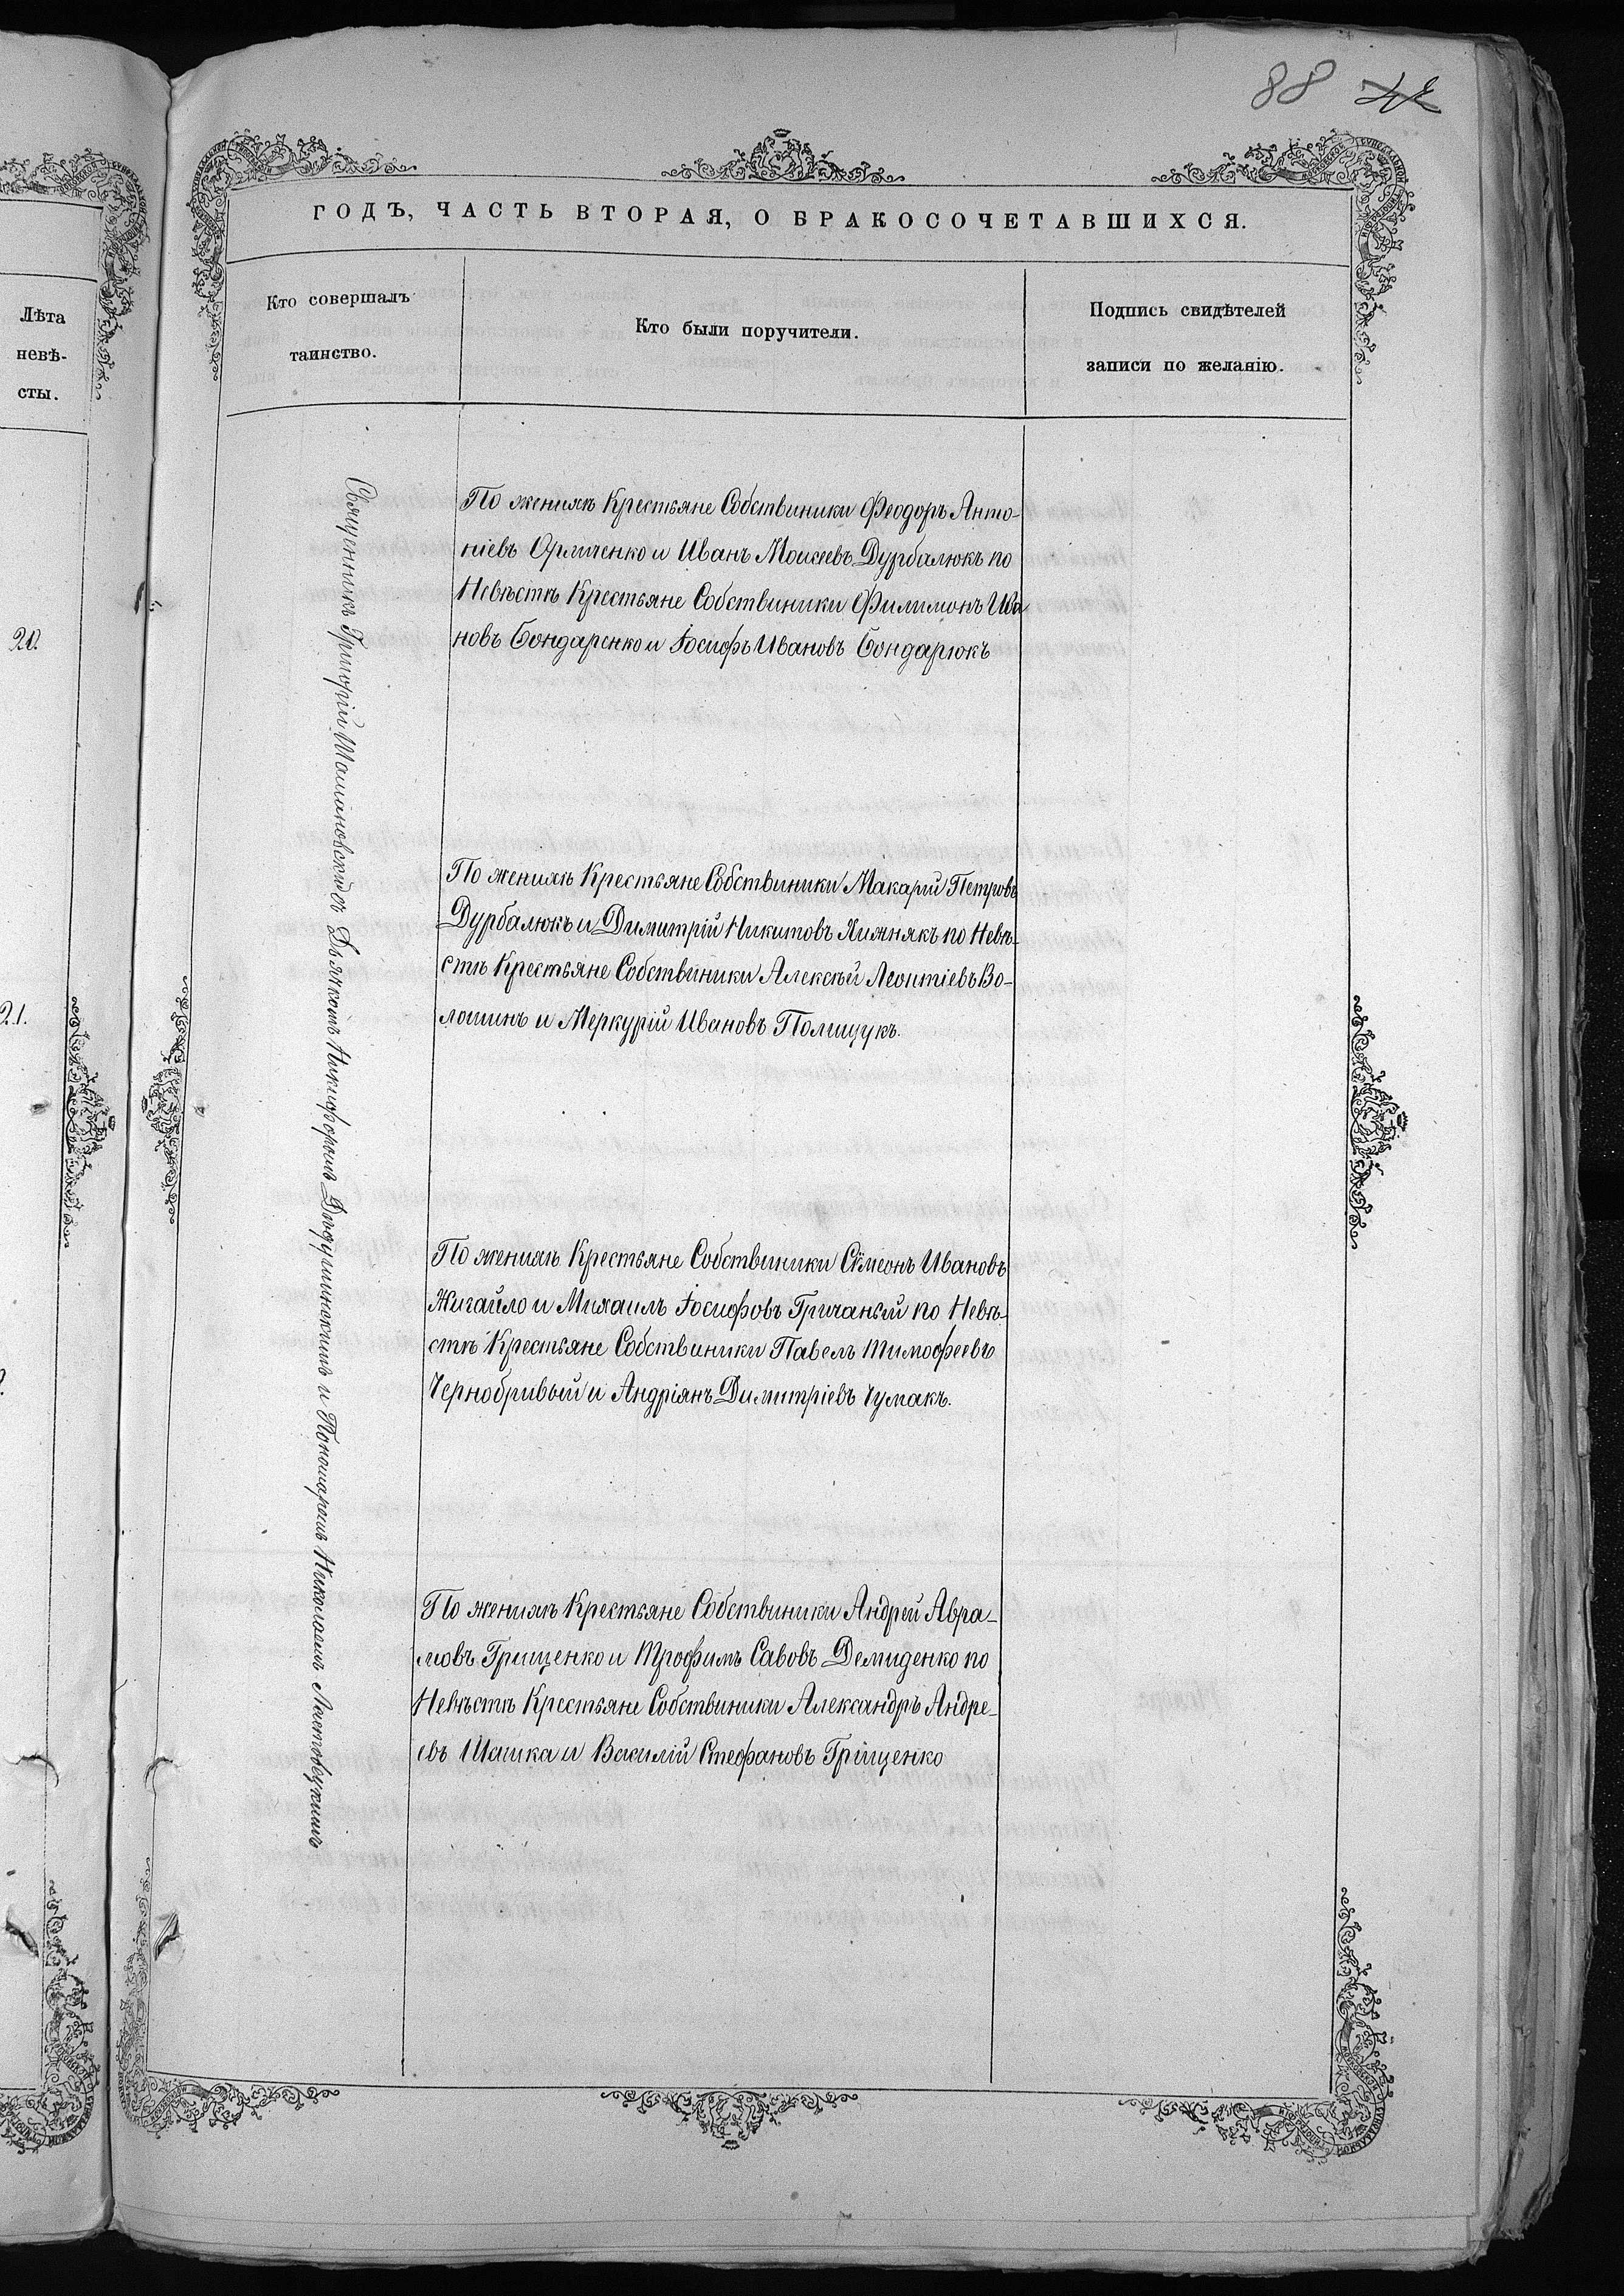 88
Лѣта
невѣ-
сты.
20.
21.
ГОДЪ, ЧАСТЬ ВТОРАЯ, О БРАКОСОЧЕТАВШИХСЯ.
Кто совершалъ
таинство.
Кто были поручители.
Подпись свидѣтелей
записи по желанію.
Священникъ Григорій съ Дьячкомъ Никифоромъ и Пономаремъ Николаемъ
По женихѣ Крестьяне Собственики Феодоръ Анто-
ніевъ и Иванъ Моисеевъ Дурбалюкъ по
Невѣстѣ Крестьяне Собственики Филимонъ Ива
новъ Бондаренко и Іосифъ Ивановъ Бондарюкъ
По женихѣ Крестьяне Собственики Макарій Петровъ
Дурбалюкъ и Димитрій Никитовъ Лижнякъ по Невѣ-
стѣ Крестьяне Собственики Алексѣй Леонтіевъ Во-
лошинъ и Меркурій Ивановъ Полищукъ.
По женихѣ Крестьяне Собственики Сѵмеонъ Ивановъ
Жигайло и Михаилъ Іосифовъ Гричаный по Невѣ-
стѣ Крестьяне Собственики Павелъ Тимофеевъ
Чернобривый и Андріянъ Димитріевъ Чумакъ.
По женихѣ Крестьяне Собственики Андрей Авра-
мовъ Грищенко и Трофимъ Савовъ Демиденко по
Невѣстѣ Крестьяне Собственики Александръ Андре-
евъ Шашка и Василій Стефановъ Грищенко